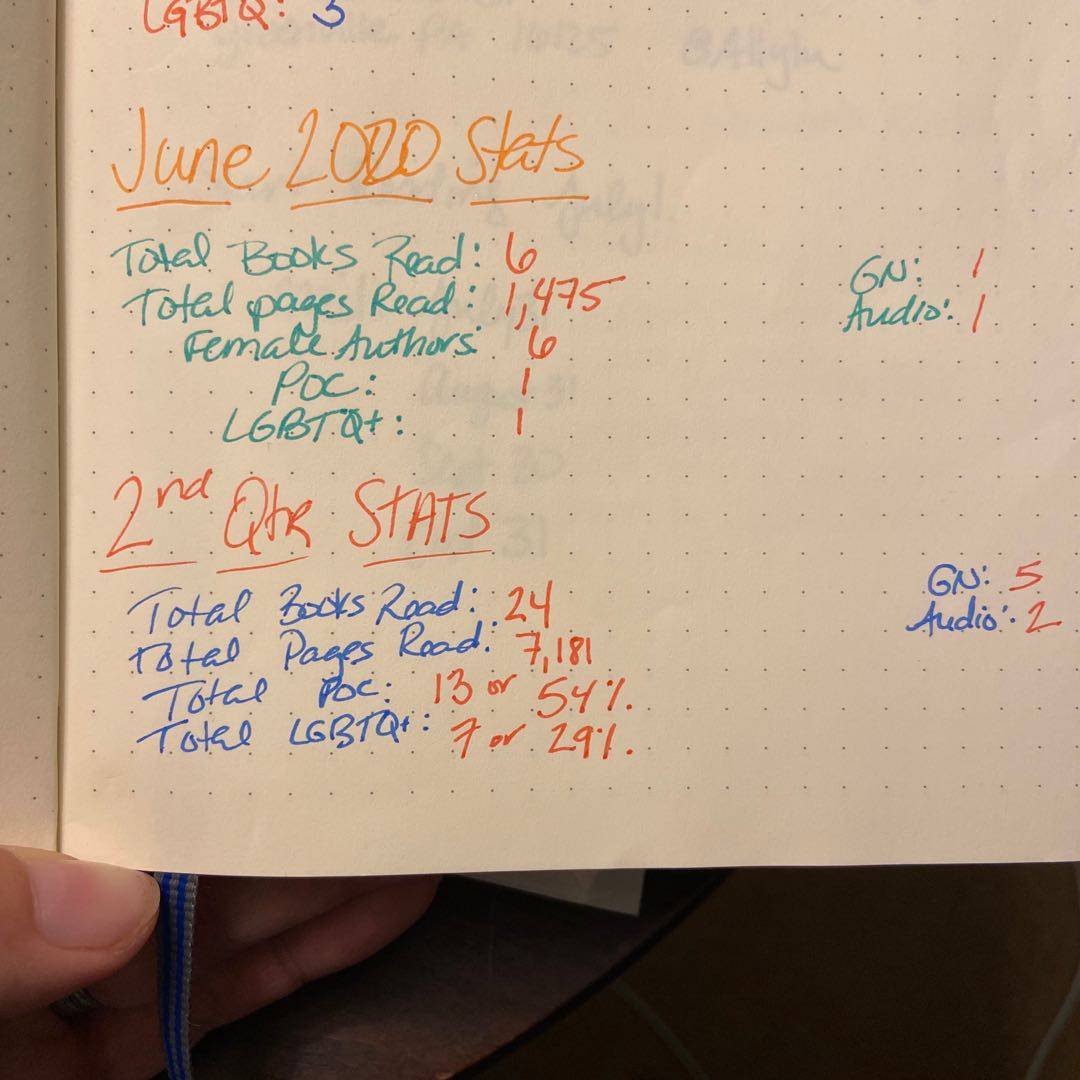 LGBTQ: 3
June 2020 Stats
Total Books Read: 6
GN: 1
Total pages Read: 1,475
Audio: 1
Female Authors: 6
POC: 1
LGBTQ+: 1
2nd Qtr STATS
Total Books Read: 24
GN: 5
Total Pages Read: 7,181
Audio: 2
Total POC: 13 or 54%.
Total LGBTQ+: 7 or 29%.